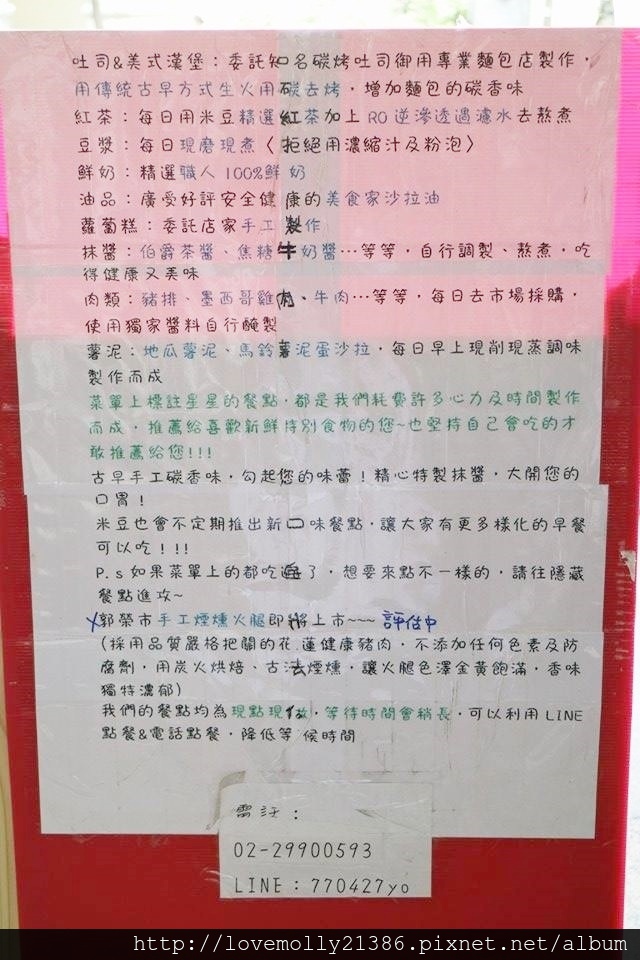 吐司&美式漢堡：委託知名碳烤吐司御用專業麵包店製作，
用傳統古早方式生火用碳去烤，增加麵包的碳香味
紅茶：每日用米豆精選紅茶加上RO逆滲透過濾水去熬煮
豆漿：每日現磨現煮〈拒絕用濃縮汁及粉泡〉
鮮奶：精選職人100%鮮奶
油品：廣受好評安全健康的美食家沙拉油
蘿蔔糕：委託店家手工製作
抹醬：伯爵茶醬、焦糖牛奶醬…等等，自行調製、熬煮，吃
得健康又美味
肉類：豬排、墨西哥雞肉、牛肉…等等，每日去市場採購，
使用獨家醬料自行醃製
薯泥：地瓜薯泥、馬鈴薯泥蛋沙拉，每日早上現削現蒸調味
製作而成
菜單上標註星星的餐點，都是我們耗費許多心力及時間製作
而成，推薦給喜歡新鮮特別食物的您~也堅持自己會吃的才
敢推薦給您!!!
古早手工碳香味，勾起您的味蕾！精心特製抹醬，大開您的
口胃！
米豆也會不定期推出新口味餐點，讓大家有更多樣化的早餐
可以吃！!!
P.s如果菜單上的都吃過了，想要來點不一樣的，請往隱藏
餐點進攻~
郭榮市手工煙燻火腿即將上市~~~ 評估中
(採用品質嚴格把關的花.蓮健康豬肉，不添加任何色素及防
腐劑，用炭火烘焙、古法煙燻，讓火腿色澤金黃飽滿，香味
獨特濃郁)
我們的餐點均為現點現做，等待時間會稍長，可以利用LINE
點餐&電話點餐，降低等候時間
電話：
02-29900593
LINE：770427yo
http://lovemolly21386.pixnet.net/album